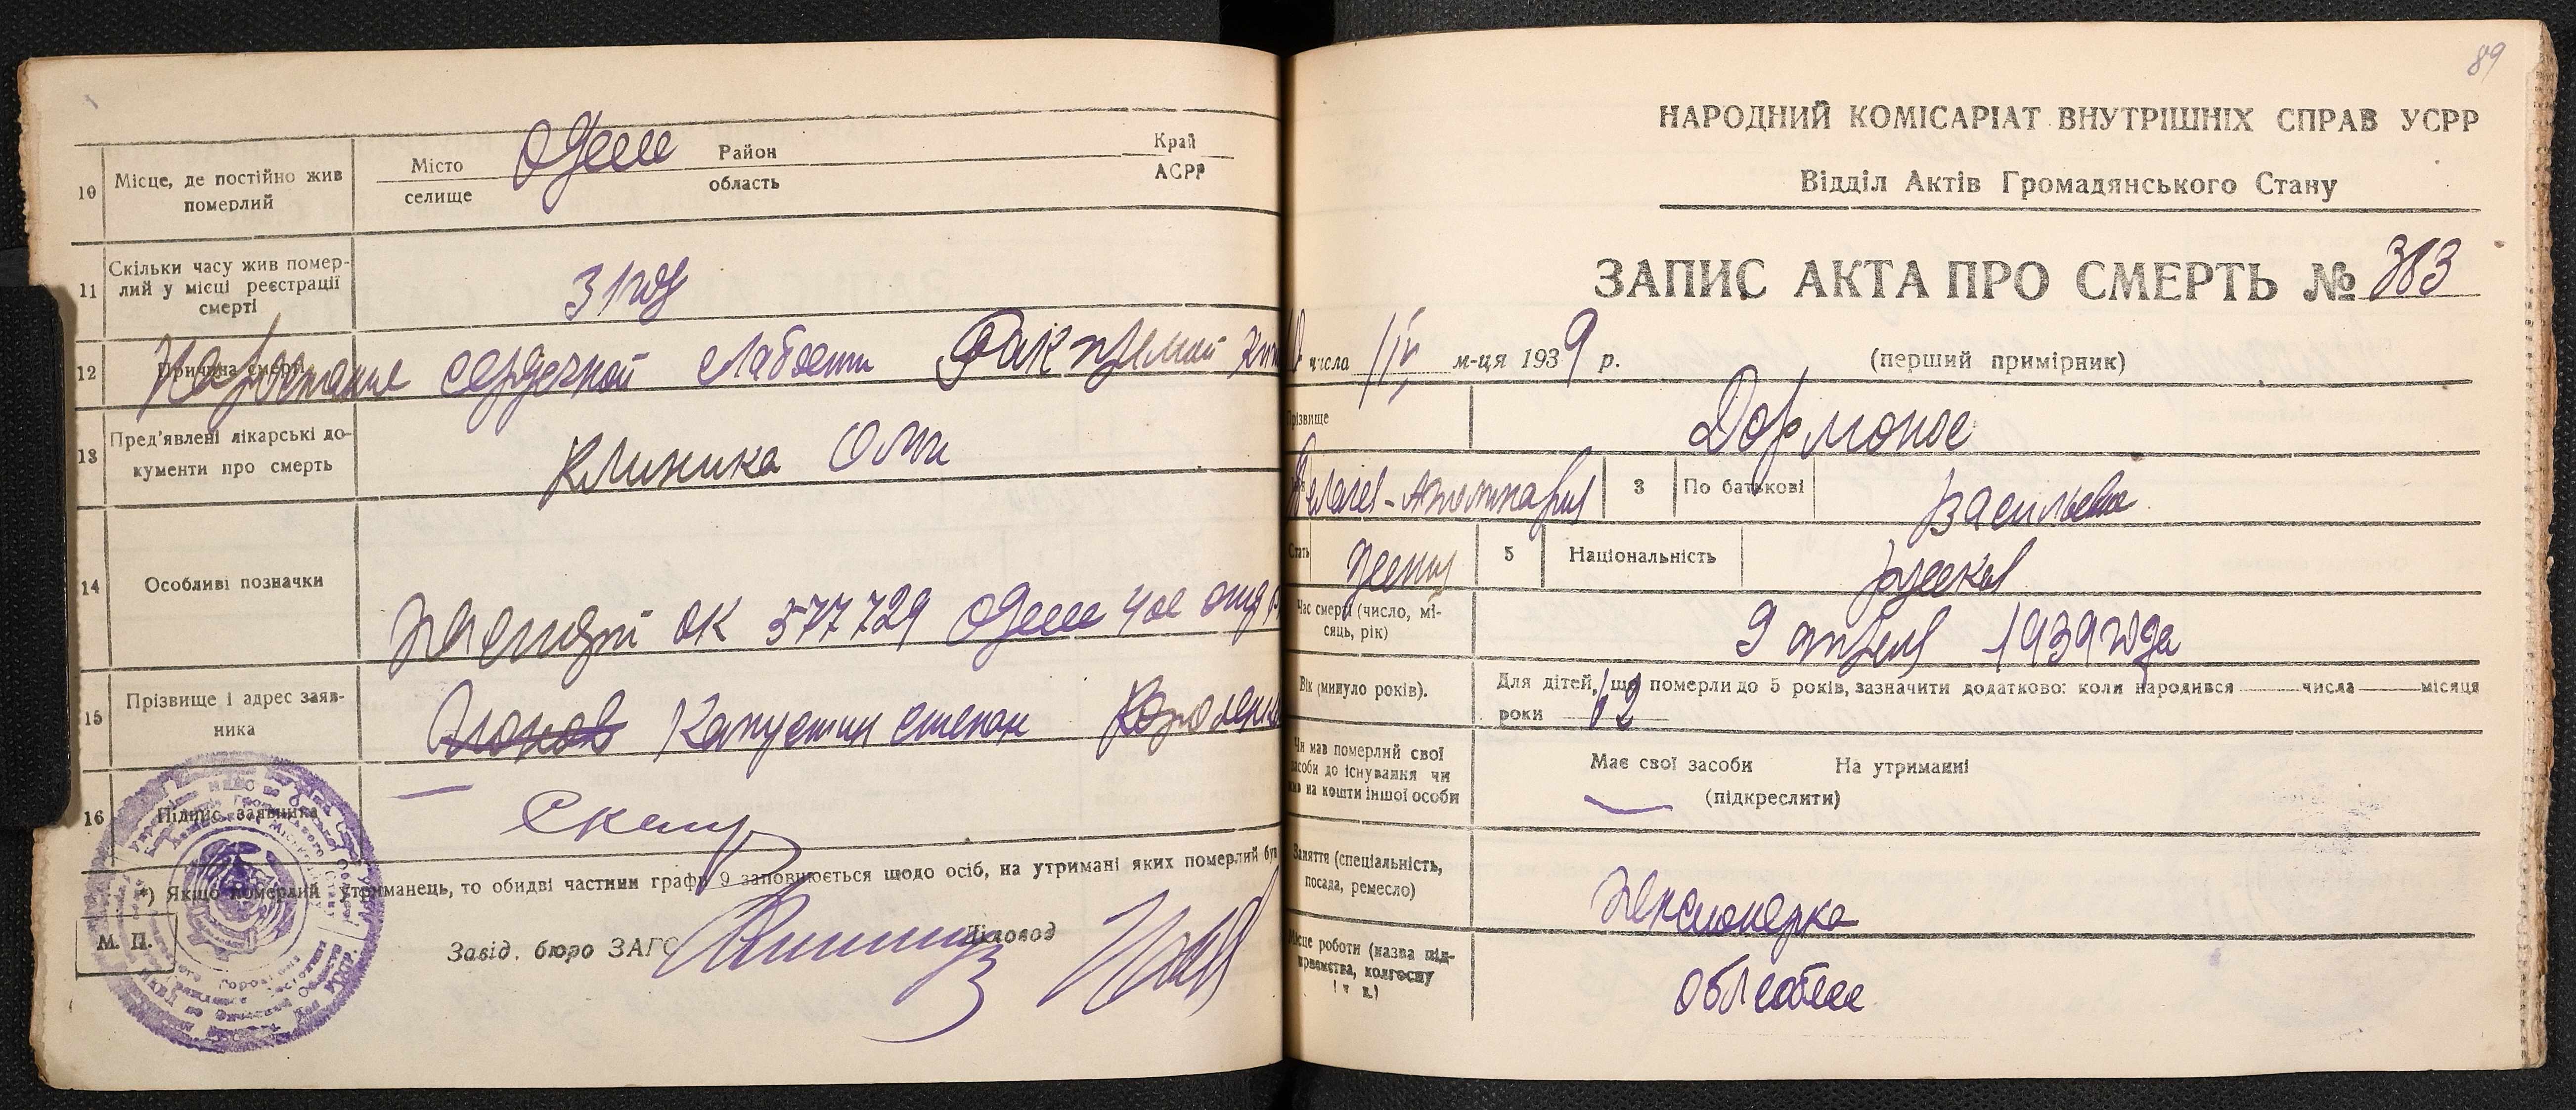 10
Місце, де постійно жив
померлий
Місто
селище
Одесса
Район
область
Край
АСРР
11
Скільки часу жив помер-
лий у місці реєстрації
смерті
31 год
12
Причина смерти
Нарастание сердечной слабости Рак прямой
13
Пред'явлені лікарські до-
кументи про смерть
Клиника
14
Особливі позначки
паспорт ОК 577729 Одесса 4ое отд
15
Прізвище і адрес заяв-
ника
Капустин Степан
16
Підпис заявника
*) Якщо померлий утриманець, то обидві частини графи 9 заповнюється щодо осіб, на утримані яких померлий був
М. П.
Завід. бюро ЗАГС
Діловод
89
НАРОДНИЙ КОМІСАРІАТ ВНУТРІШНІХ СПРАВ УСРР
Відділ Актів Громадянського Стану
ЗАПИС АКТА ПРО СМЕРТЬ № 383
числа /IV м-ця 1939 р.
(перший примірник)
Прізвище
Дормонос
Пелагея-Аполинария
3
По батькові
Васильевна
Стать
женщ
5
Національність
русская
Час смерті (число, мі-
сяць, рік)
9 апреля 1939 года
Вік (минуло років).
Для дітей, що померли до 5 років, зазначити додатково: коли народився числа місяця
роки 62
Чи мав померлий свої
засоби до існування чи
жив на кошти іншої особи
Має свої засоби На утриманні
(підкреслити)
Заняття (спеціальність,
посада, ремесло)
пенсионерка
Місце роботи (назва під-
приємства, колгоспу
і т. п.)
облсобес